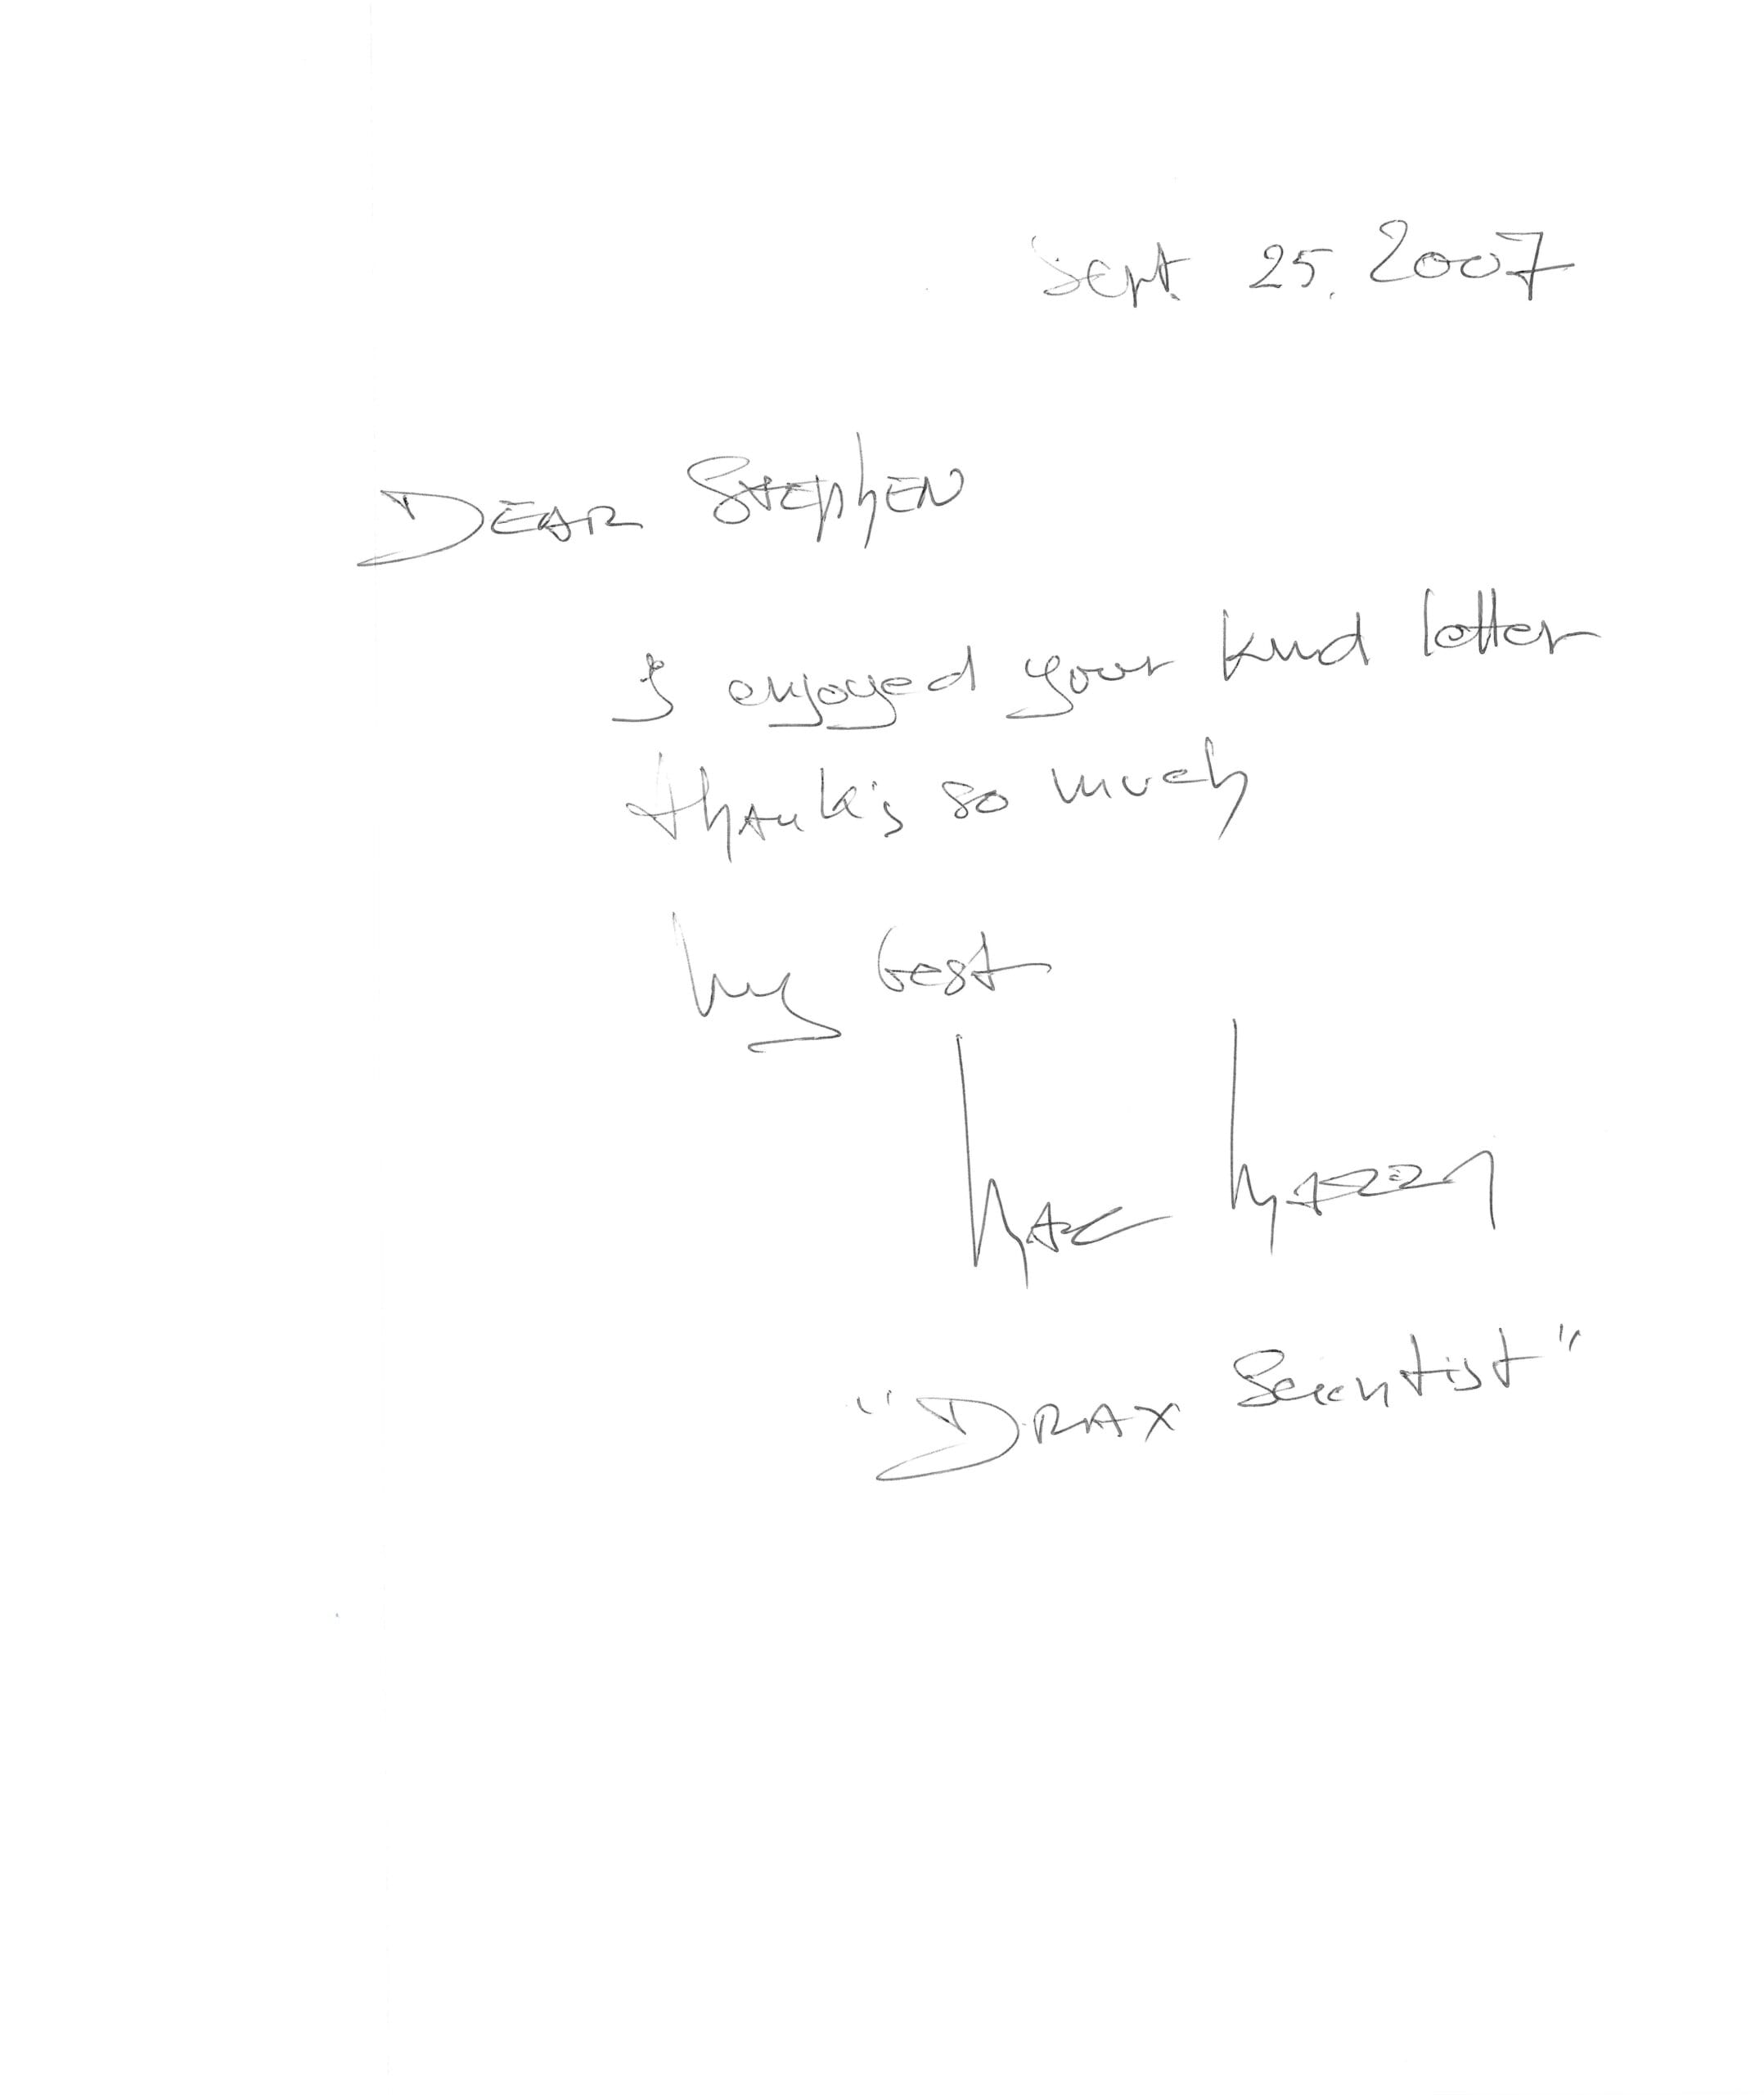 Sept. 25, 2007
DEAR STEPHEN
I enjoyed your kind letter
thank's so much
My best
MAC
"DRAX Scientist"